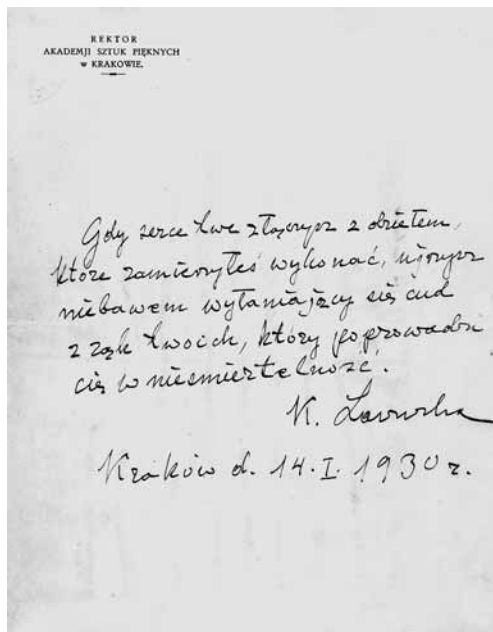 REKTOR
AKADEMJI SZTUK PIĘKNYCH
W KRAKOWIE.
Gdy serce twe złączysz z dziełem,
które zamierzyłeś wykonać, ujrzysz
niebawem wyłaniający się cud
z rąk twoich, który poprowadzi
cię w nieśmiertelność.
K.
Kraków d. 14. I. 1930 r.